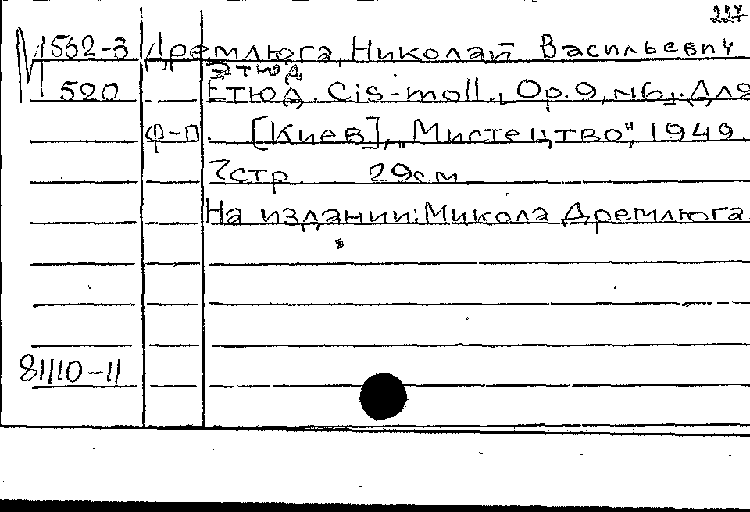 227
М 562-3 Дремлюга, Николай Васильевич
Этюд
520 Етюд. Cis-moll., Op. 9, №6. Для
ф-п. [Киев], „Мистецтво", 1949.
7стр 29см
На издании: Микола Дремлюга.
81/10-11